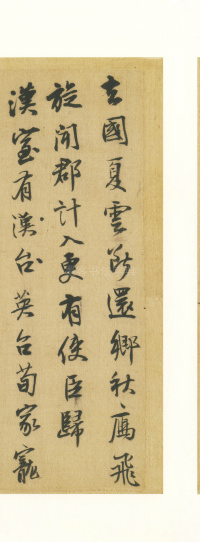 去國夏雲斷還鄉秋鴈飛
旋聞郡計入更有使臣歸
漢室有漢台英台荀家寵